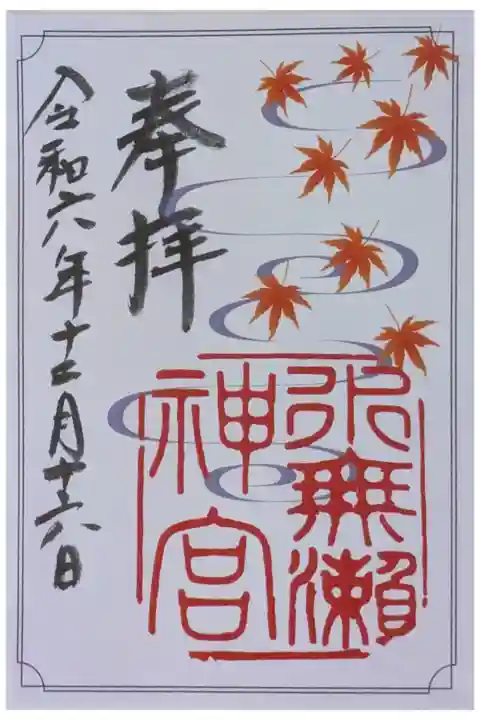 奉拝
水無瀬
神宮
令和六年十二月十六日